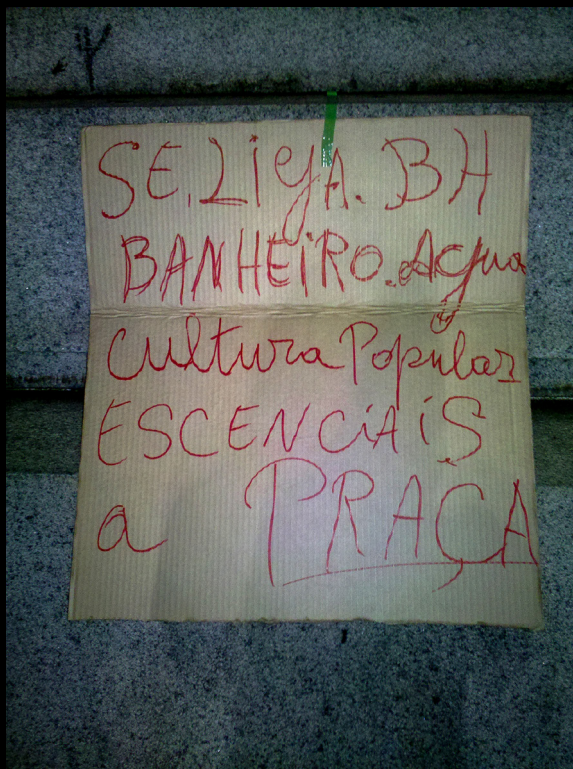 SE.LigA.BH
BANHEiRO.Agua
Cultura Popular
ESCENCiAiS
a PRAÇA